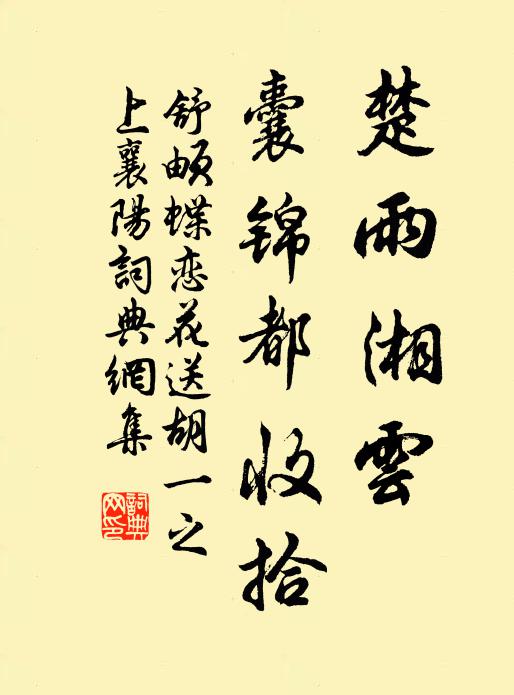 楚雨湘雲
囊錦都收拾
舒頔蝶恋花送胡一之
上襄陽詞典網集
詞典网印